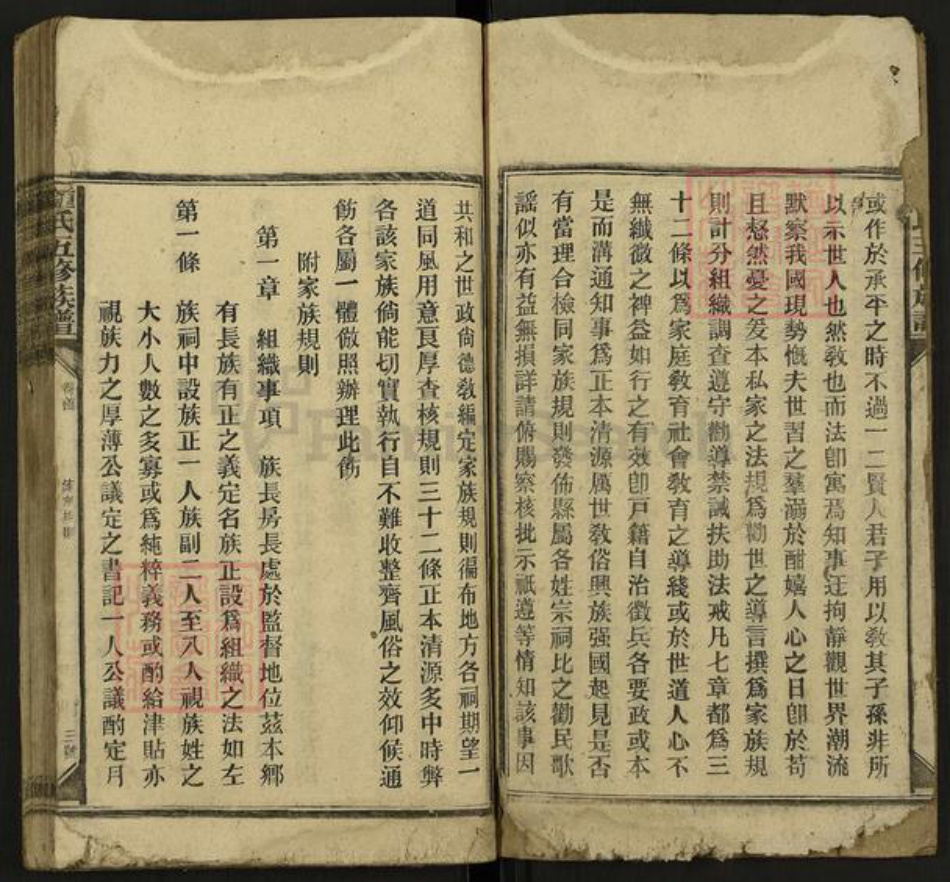 或作於承平之時不過一二賢人君子用以敎其子孫非所
以示世人也然敎也而法卽寓焉知事迂拘靜觀世界潮流
默察我國現勢慨夫世習之羣溺於酣嬉人心之日卽於苟
且惄然憂之爰本私家之法規爲勸世之導言撰爲家族規
則計分組織調查遵守勸導禁誡扶助法戒凡七章都爲三
十二條以爲家庭敎育社會敎育之導綫或於世道人心不
無纖微之裨益如行之有效卽戸籍自治徵兵各要政或本
是而溝通知事爲正本清源厲世敎俗興族强國起見是否
有當理合檢同家族規則發佈縣屬各姓宗祠比之勸民歌
謠似亦有益無損詳請俯賜察核批示祇遵等情知該事因
共和之世政尙德敎編定家族規則徧布地方各祠期望一
道同風用意良厚查核規則三十二條正本清源多中時弊
各該家族倘能切實執行自不難收整齊風俗之效仰候通
飭各屬一體倣照辦理此飭
附家族規則
第一章 組織事項 族長房長處於監督地位茲本鄕
有長族有正之義定名族正設爲組織之法如左
第一條 族祠中設族正一人族副二人至八人視族姓之
大小人數之多寡或爲純粹義務或酌給津貼亦
視族力之厚薄公議定之書記一人公議酌定月
氏五修族譜